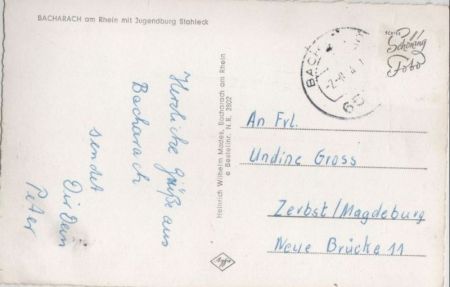 BACHARACH am Rhein mit Jugendburg Stahleck
Herzliche Grüße aus
Bacharach
sendet
Dir Dein
Peter
Heinrich Wilhelm Mades, Bacharach am Rhein
Bestellnr. N.R. 3802
Agfa
BACH
Schöning
Foto
An Frl.
Undine Gross
Zerbst/Magdeburg
Neue Brücke 11